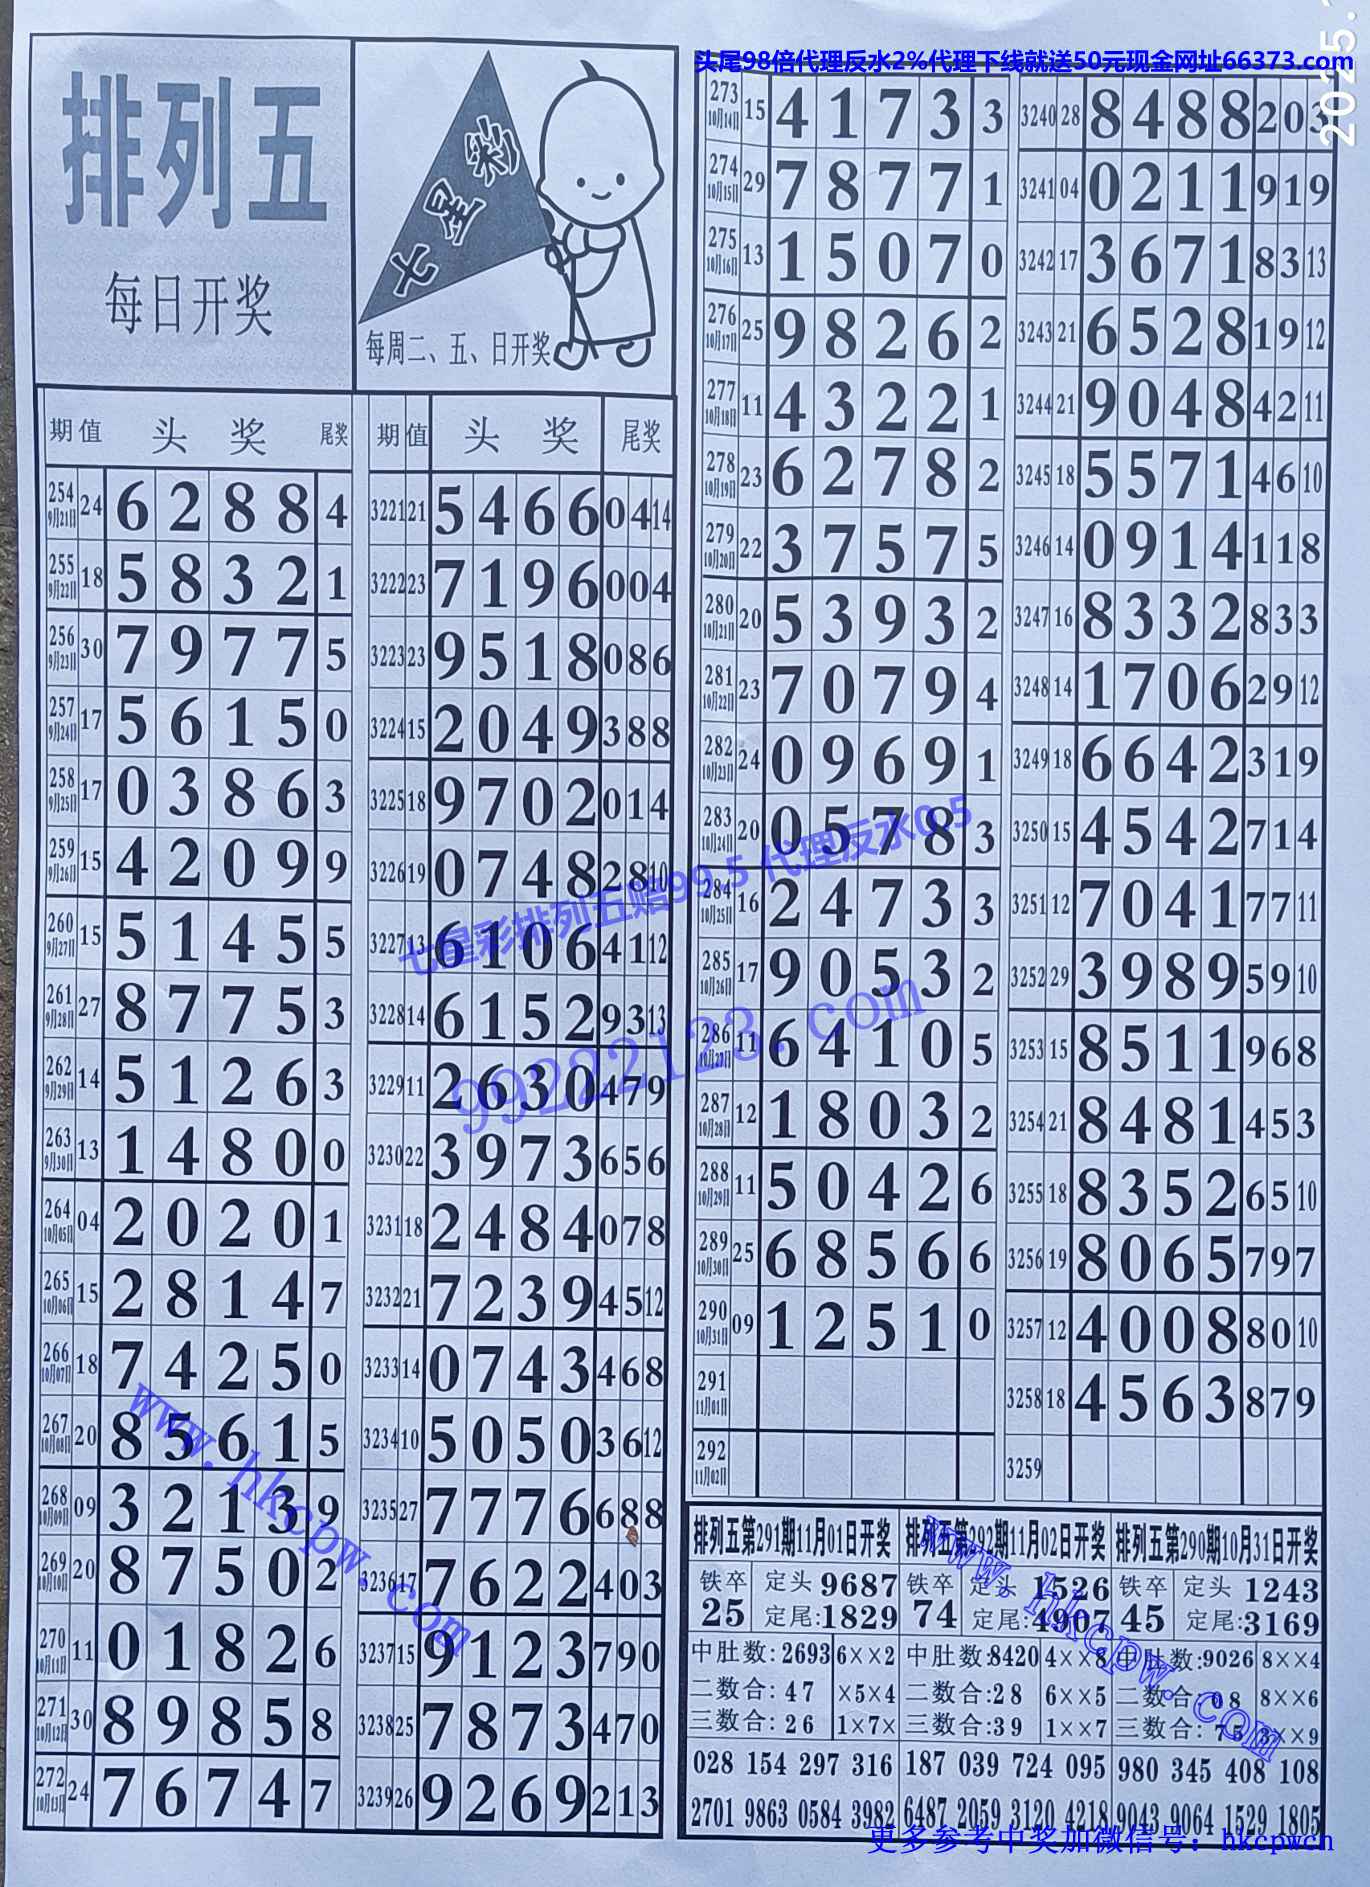 2025.
头尾98倍代理反水2%代理下线就送50元现金网址66373.com
排列五
每日开奖
七星彩
每周二、五、日开奖
期 值 头 奖 尾奖
254 9月21日 24 6 2 8 8 4
255 9月22日 18 5 8 3 2 1
256 9月23日 30 7 9 7 7 5
257 9月24日 17 5 6 1 5 0
258 9月25日 17 0 3 8 6 3
259 9月26日 15 4 2 0 9 9
260 9月27日 15 5 1 4 5 5
261 9月28日 27 8 7 7 5 3
262 9月29日 14 5 1 2 6 3
263 9月30日 13 1 4 8 0 0
264 10月05日 04 2 0 2 0 1
265 10月06日 15 2 8 1 4 7
266 10月07日 18 7 4 2 5 0
267 10月08日 20 8 5 6 1 5
268 10月09日 09 3 2 1 3 9
269 10月10日 20 8 7 5 0 2
270 10月11日 11 0 1 8 2 6
271 10月12日 30 8 9 8 5 8
272 10月13日 24 7 6 7 4 7
期 值 头 奖 尾奖
3221 21 5 4 6 6 0 4 14
3222 23 7 1 9 6 0 0 4
3223 23 9 5 1 8 0 8 6
3224 15 2 0 4 9 3 8 8
3225 18 9 7 0 2 0 1 4
3226 19 0 7 4 8 2 8 10
3227 13 6 1 0 6 4 1 12
3228 14 6 1 5 2 9 3 13
3229 11 2 6 3 0 4 7 9
3230 22 3 9 7 3 6 5 6
3231 18 2 4 8 4 0 7 8
3232 21 7 2 3 9 4 5 12
3233 14 0 7 4 3 4 6 8
3234 10 5 0 5 0 3 6 12
3235 27 7 7 7 6 6 8 8
3236 17 7 6 2 2 4 0 3
3237 15 9 1 2 3 7 9 0
3238 25 7 8 7 3 4 7 0
3239 26 9 2 6 9 2 1 3
273 10月14日 15 4 1 7 3 3
274 10月15日 29 7 8 7 7 1
275 10月16日 13 1 5 0 7 0
276 10月17日 25 9 8 2 6 2
277 10月18日 11 4 3 2 2 1
278 10月19日 23 6 2 7 8 2
279 10月20日 22 3 7 5 7 5
280 10月21日 20 5 3 9 3 2
281 10月22日 23 7 0 7 9 4
282 10月23日 24 0 9 6 9 1
283 10月24日 20 0 5 7 8 3
284 10月25日 16 2 4 7 3 3
285 10月26日 17 9 0 5 3 2
286 10月27日 11 6 4 1 0 5
287 10月28日 12 1 8 0 3 2
288 10月29日 11 5 0 4 2 6
289 10月30日 25 6 8 5 6 6
290 10月31日 09 1 2 5 1 0
291 11月01日
292 11月02日
3240 28 8 4 8 8 2 0 3
3241 04 0 2 1 1 9 1 9
3242 17 3 6 7 1 8 3 13
3243 21 6 5 2 8 1 9 12
3244 21 9 0 4 8 4 2 11
3245 18 5 5 7 1 4 6 10
3246 14 0 9 1 4 1 1 8
3247 16 8 3 3 2 8 3 3
3248 14 1 7 0 6 2 9 12
3249 18 6 6 4 2 3 1 9
3250 15 4 5 4 2 7 1 4
3251 12 7 0 4 1 7 7 11
3252 29 3 9 8 9 5 9 10
3253 15 8 5 1 1 9 6 8
3254 21 8 4 8 1 4 5 3
3255 18 8 3 5 2 6 5 10
3256 19 8 0 6 5 7 9 7
3257 12 4 0 0 8 8 0 10
3258 18 4 5 6 3 8 7 9
3259
七星彩排列五赔99.5 代理反水0.5
99222123.com
www.hkcpw.com
排列五第291期11月01日开奖
铁卒 25 定头 9687
定尾:1829
中肚数:2693 6××2
二数合:47 ×5×4
三数合:26 1×7×
028 154 297 316
2701 9863 0584 3982
排列五第292期11月02日开奖
铁卒 74 定头 1526
定尾:4907
中肚数:8420 4××8
二数合:28 6××5
三数合:39 1××7
187 039 724 095
6487 2059 3120 4218
排列五第290期10月31日开奖
铁卒 45 定头 1243
定尾:3169
中肚数:9026 8××4
二数合:08 8××6
三数合:75 3××9
980 345 408 108
9043 9064 1529 1805
www.hkcpw.com
更多参考中奖加微信号：hkcpwcn